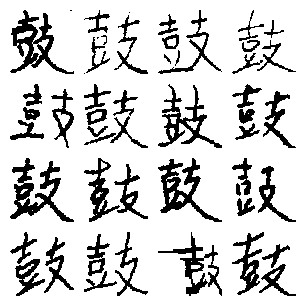 鼓鼓鼓鼓
鼓鼓鼓鼓
鼓鼓鼓鼓
鼓鼓鼓鼓